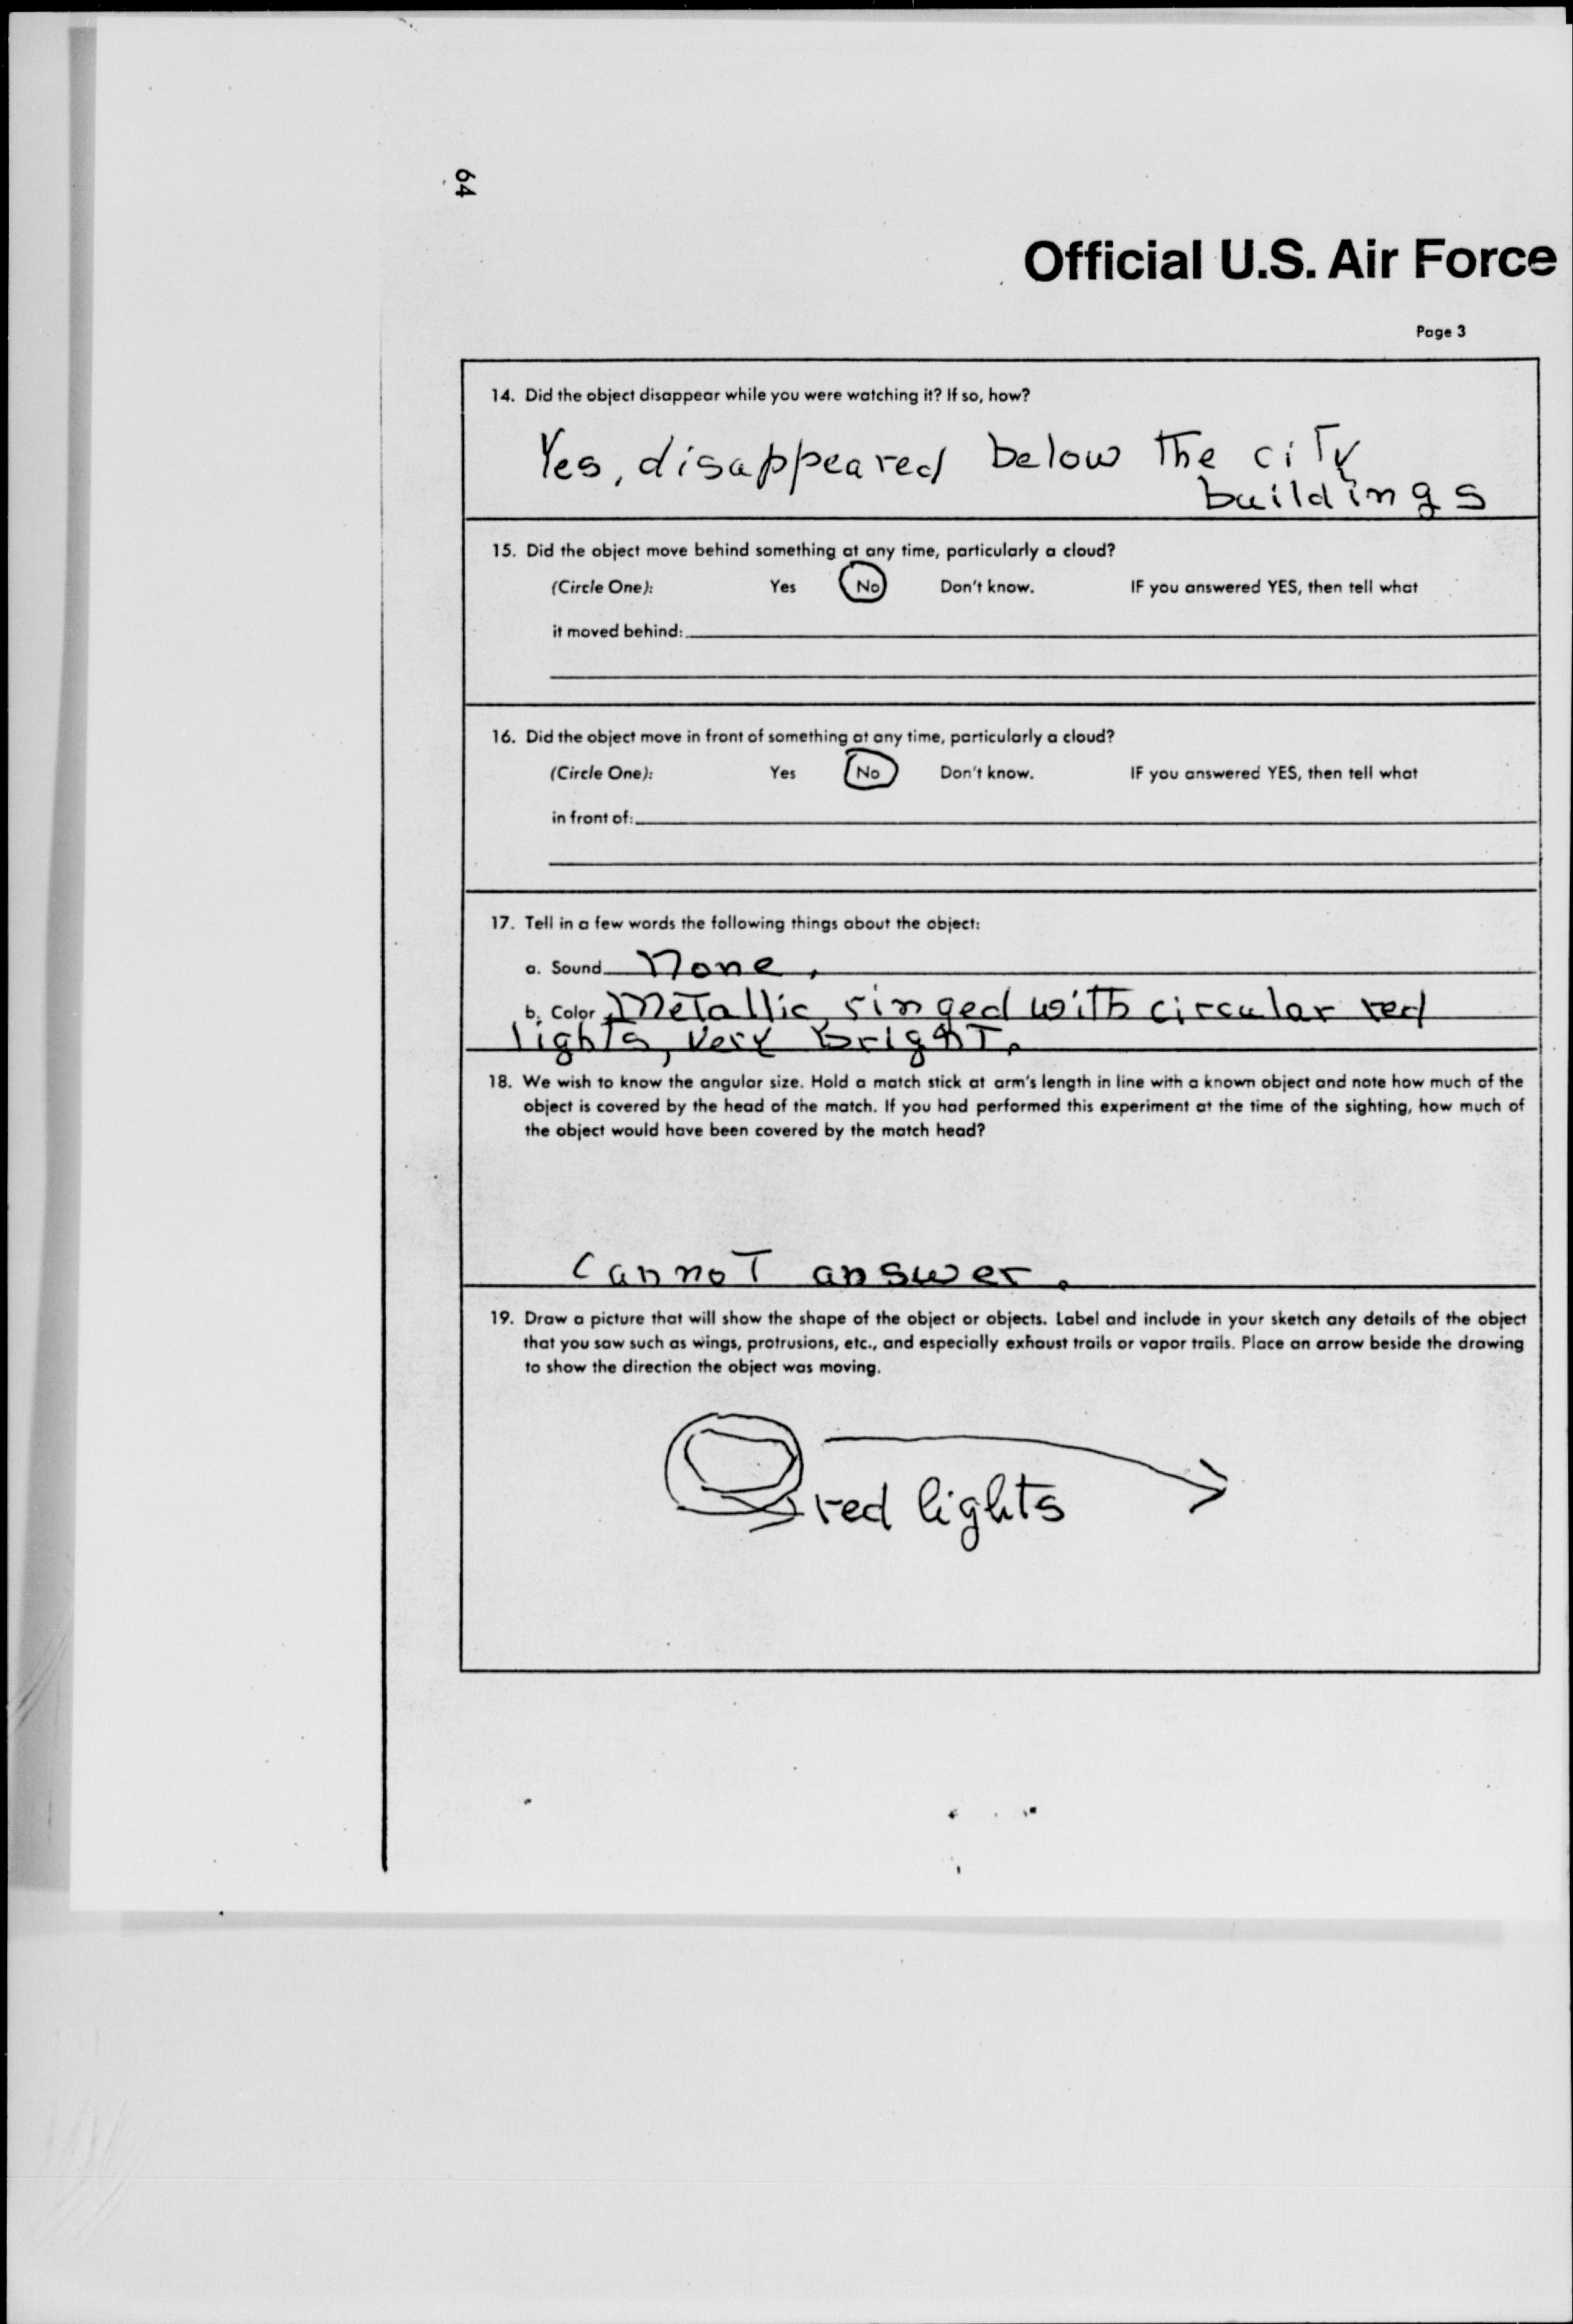 64
Official U.S. Air Force
Page 3
14. Did the object disappear while you were watching it? If so, how?
Yes, disappeared below the city
buildings
15. Did the object move behind something at any time, particularly a cloud?
(Circle One): Yes No Don't know. IF you answered YES, then tell what
it moved behind:
16. Did the object move in front of something at any time, particularly a cloud?
(Circle One): Yes No Don't know. IF you answered YES, then tell what
in front of:
17. Tell in a few words the following things about the object:
a. Sound None.
b. Color Metallic, ringed with circular red
lights, very bright.
18. We wish to know the angular size. Hold a match stick at arm's length in line with a known object and note how much of the
object is covered by the head of the match. If you had performed this experiment at the time of the sighting, how much of
the object would have been covered by the match head?
Cannot answer.
19. Draw a picture that will show the shape of the object or objects. Label and include in your sketch any details of the object
that you saw such as wings, protrusions, etc., and especially exhaust trails or vapor trails. Place an arrow beside the drawing
to show the direction the object was moving.
red lights